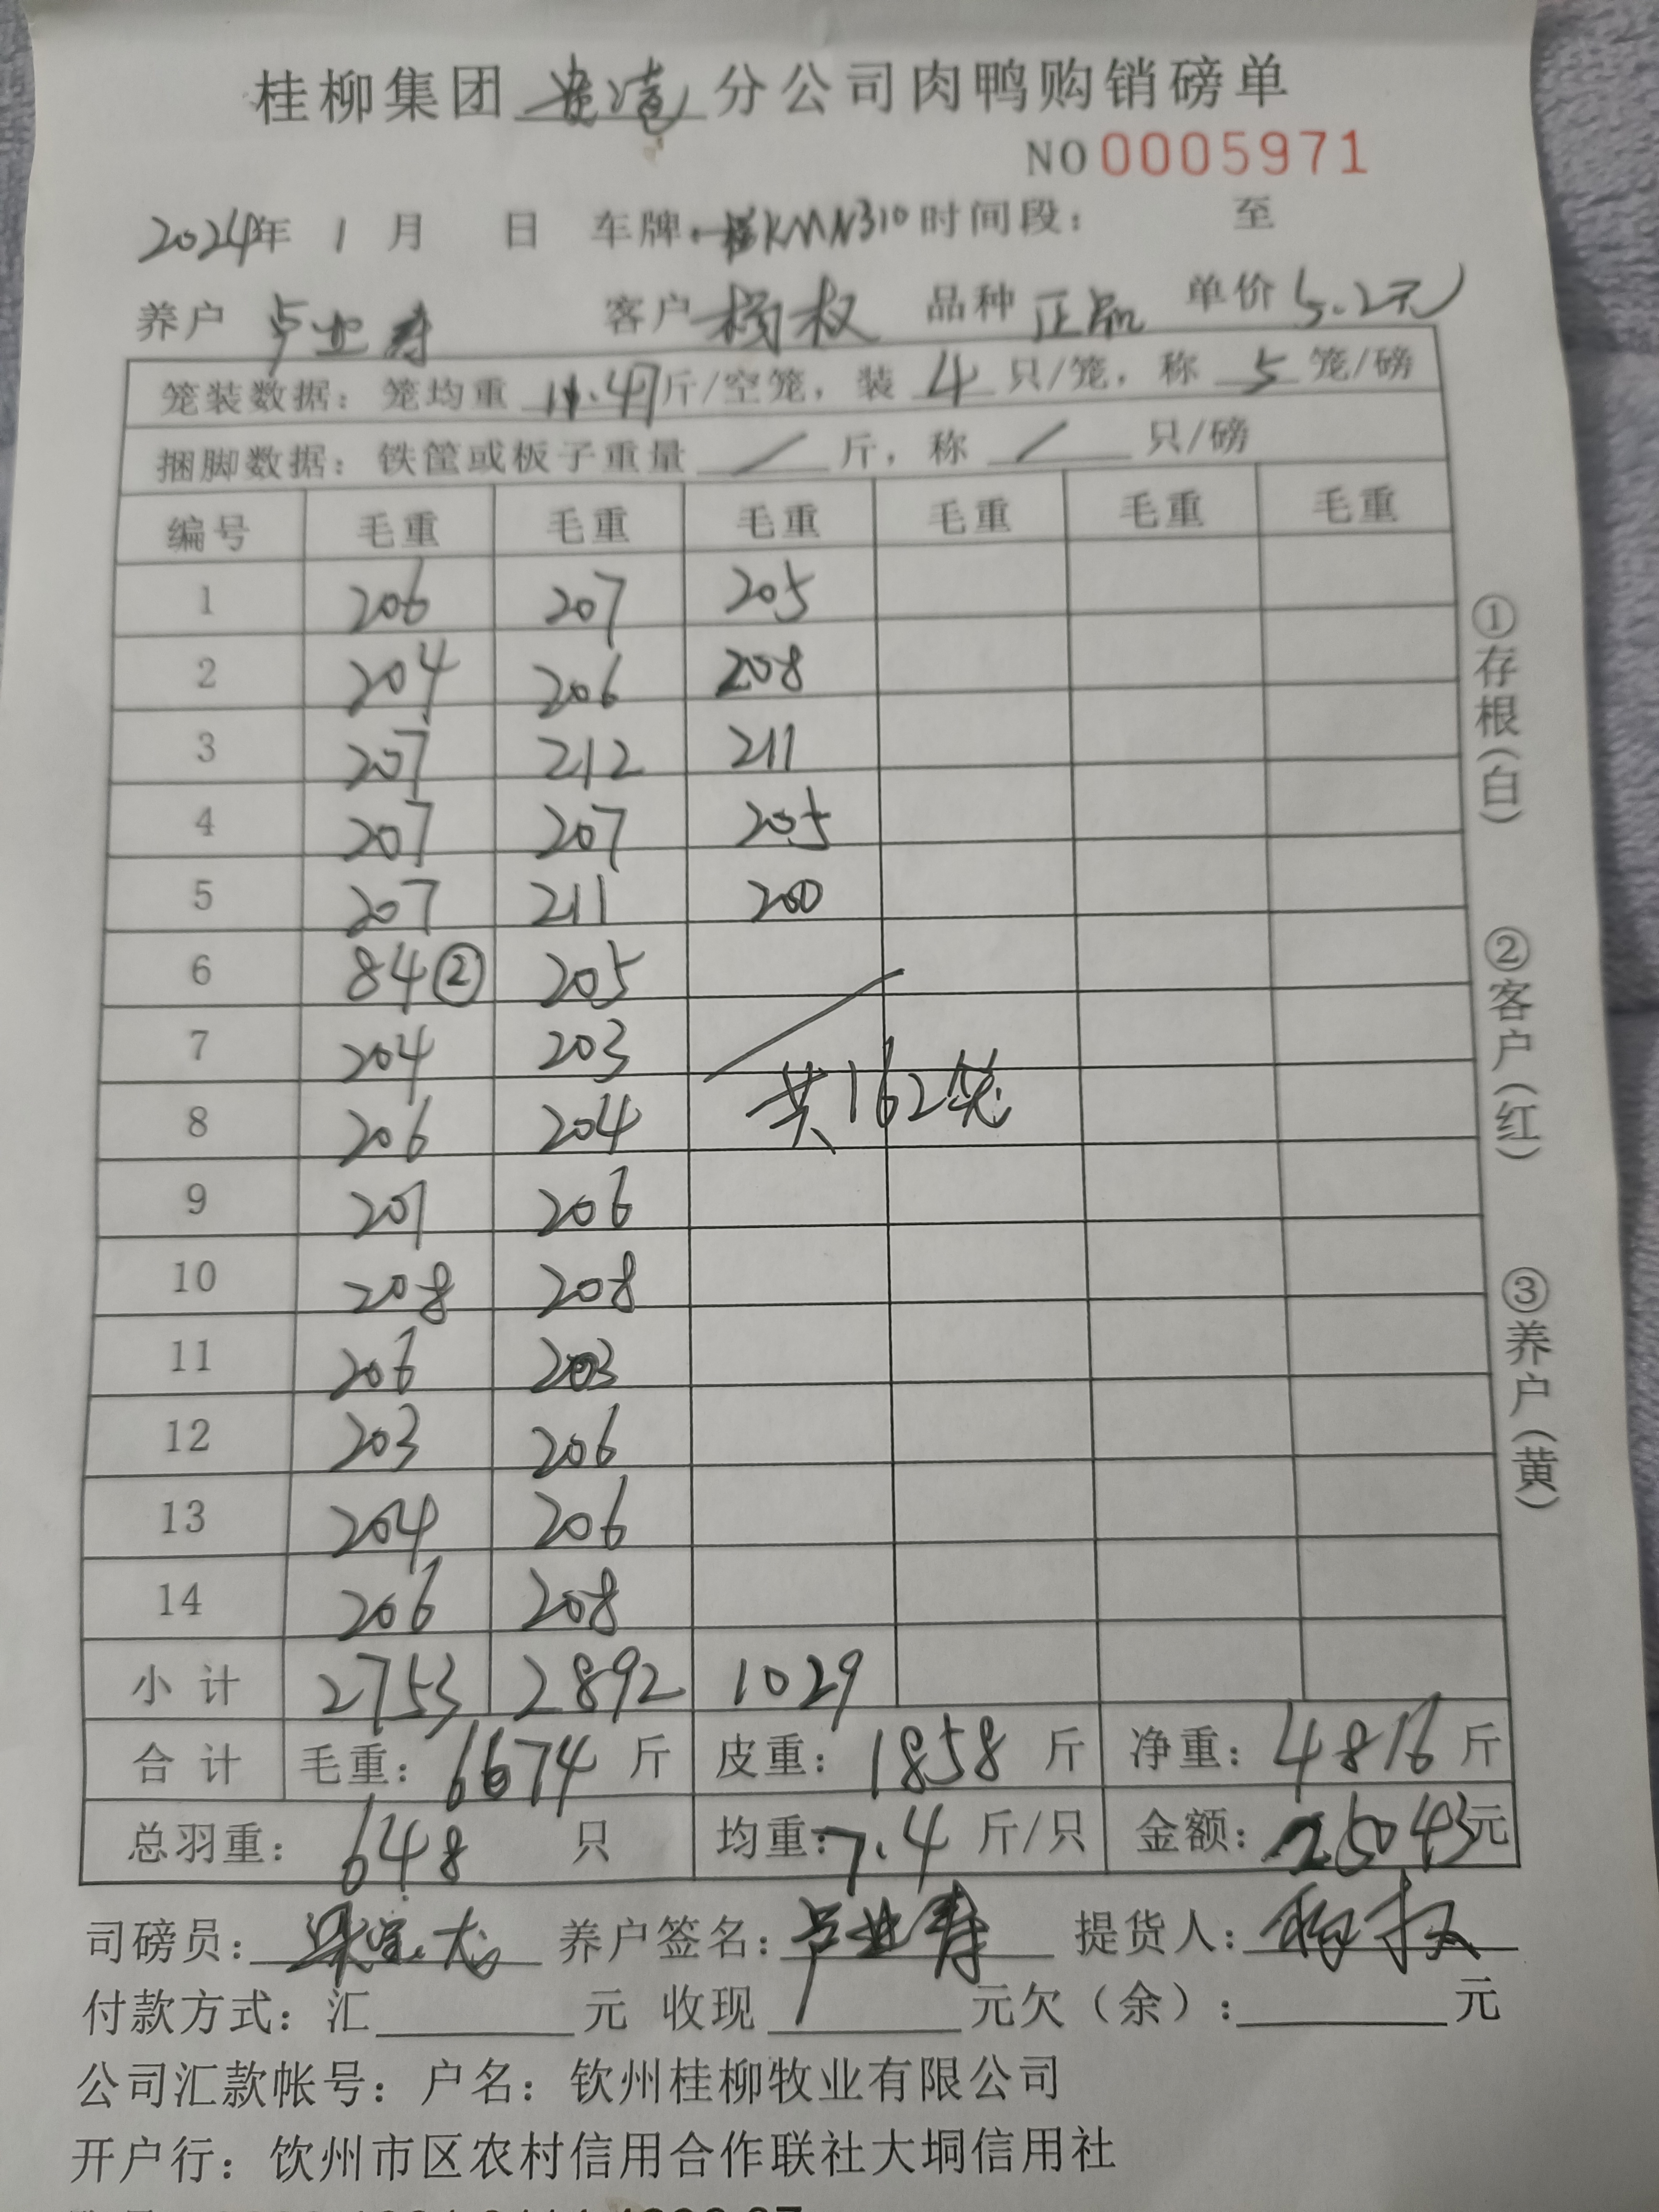 桂柳集团 贵港 分公司肉鸭购销磅单
NO 0005971
2024年 1 月 日 车牌: 桂KMN310 时间段: 至
养户 卢业寿 客户 杨权 品种 正品 单价 5.2元
笼装数据: 笼均重 11.47 斤/空笼, 装 4 只/笼, 称 5 笼/磅
捆脚数据: 铁筐或板子重量 / 斤, 称 / 只/磅
编号 毛重 毛重 毛重 毛重 毛重 毛重
1 206 207 205
2 204 206 208
3 207 212 211
4 207 207 205
5 207 211 200
6 84② 205
7 204 203
8 206 204
共162笼
9 201 206
10 208 208
11 206 203
12 203 206
13 204 206
14 206 208
小计 2753 2892 1029
合计 毛重: 6674 斤 皮重: 1858 斤 净重: 4816 斤
总羽重: 648 只 均重: 7.4 斤/只 金额: 25043元
司磅员: 养户签名: 卢业寿 提货人: 杨权
付款方式: 汇 元 收现 元欠(余): 元
公司汇款帐号: 户名: 钦州桂柳牧业有限公司
开户行: 饮州市区农村信用合作联社大垌信用社
①存根(白)
②客户(红)
③养户(黄)